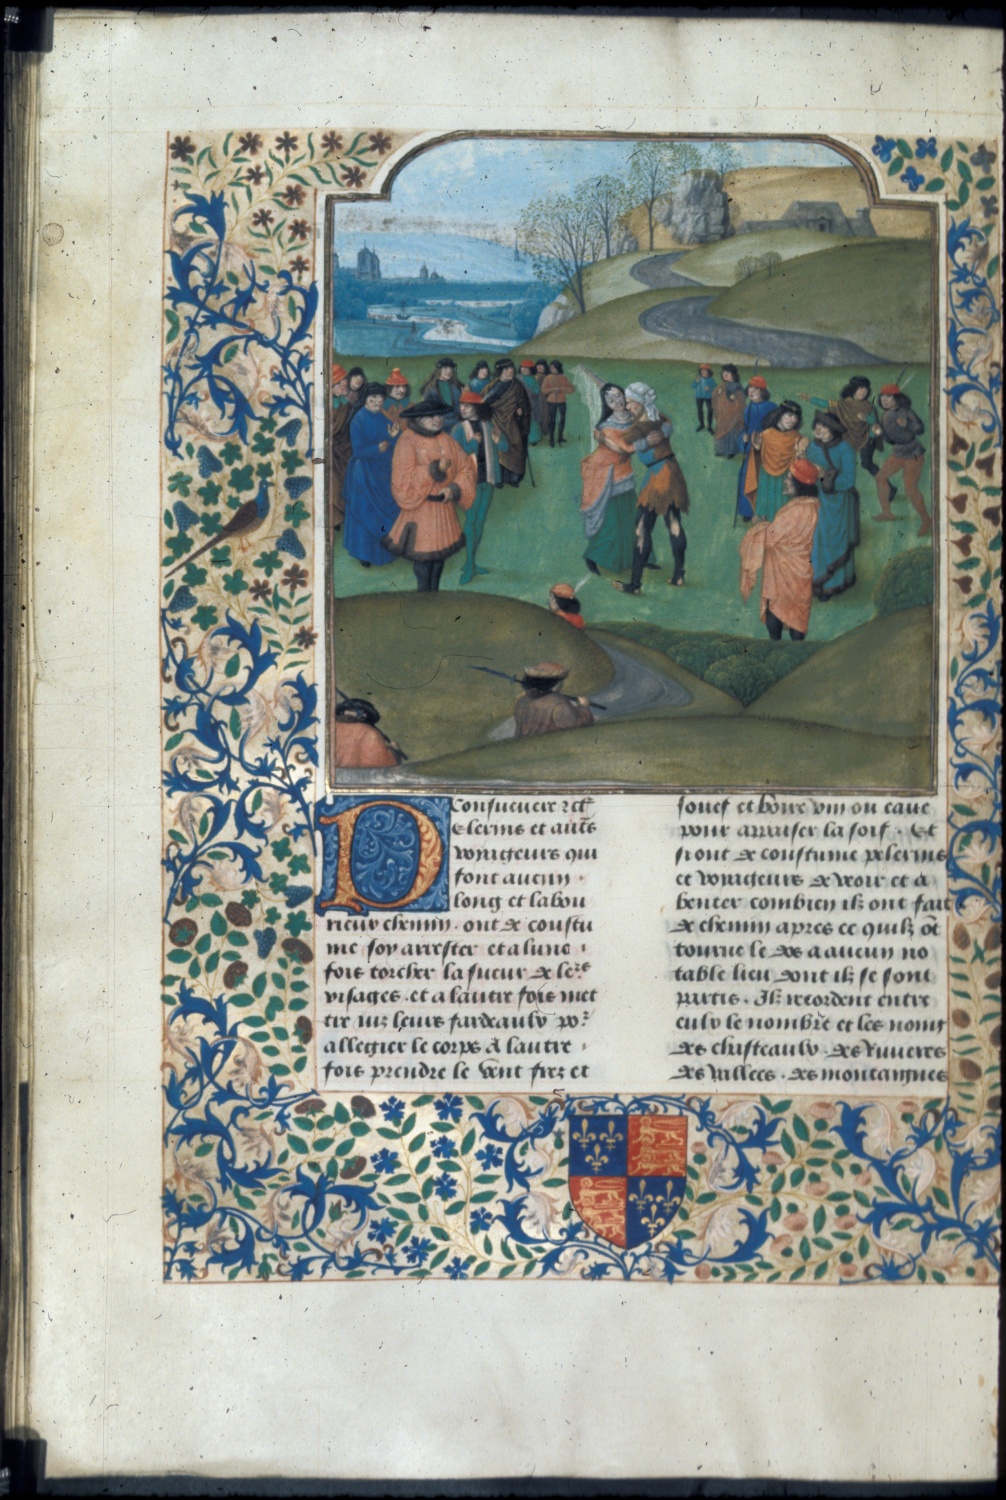 Consueuere &c̃
Elerins et aut̃s
voyageurs qui
font aucun
long et labou
rieux chemin. ont de coustu
me soy arrester et a lune
fois torcher la sueur de le~s
visages. et a lautre fois met
tre jus leurs fardeaulx po~
allegier le corps A lautre
fois prendre le vent frez et
souef et boire vin ou eaue
pour appaiser la soif. Et
si ont de coustume pelerins
et voyageurs de veoir et a
combien ilz ont fait
de chemin apres ce quilz ōt
tourne le dos a aucun no
table lieu dont ilz se sont
partis. Ilz recordent entre
eulx le nombre et les noms
des chasteaulx. des Riuieres
des vallees. des montaignes